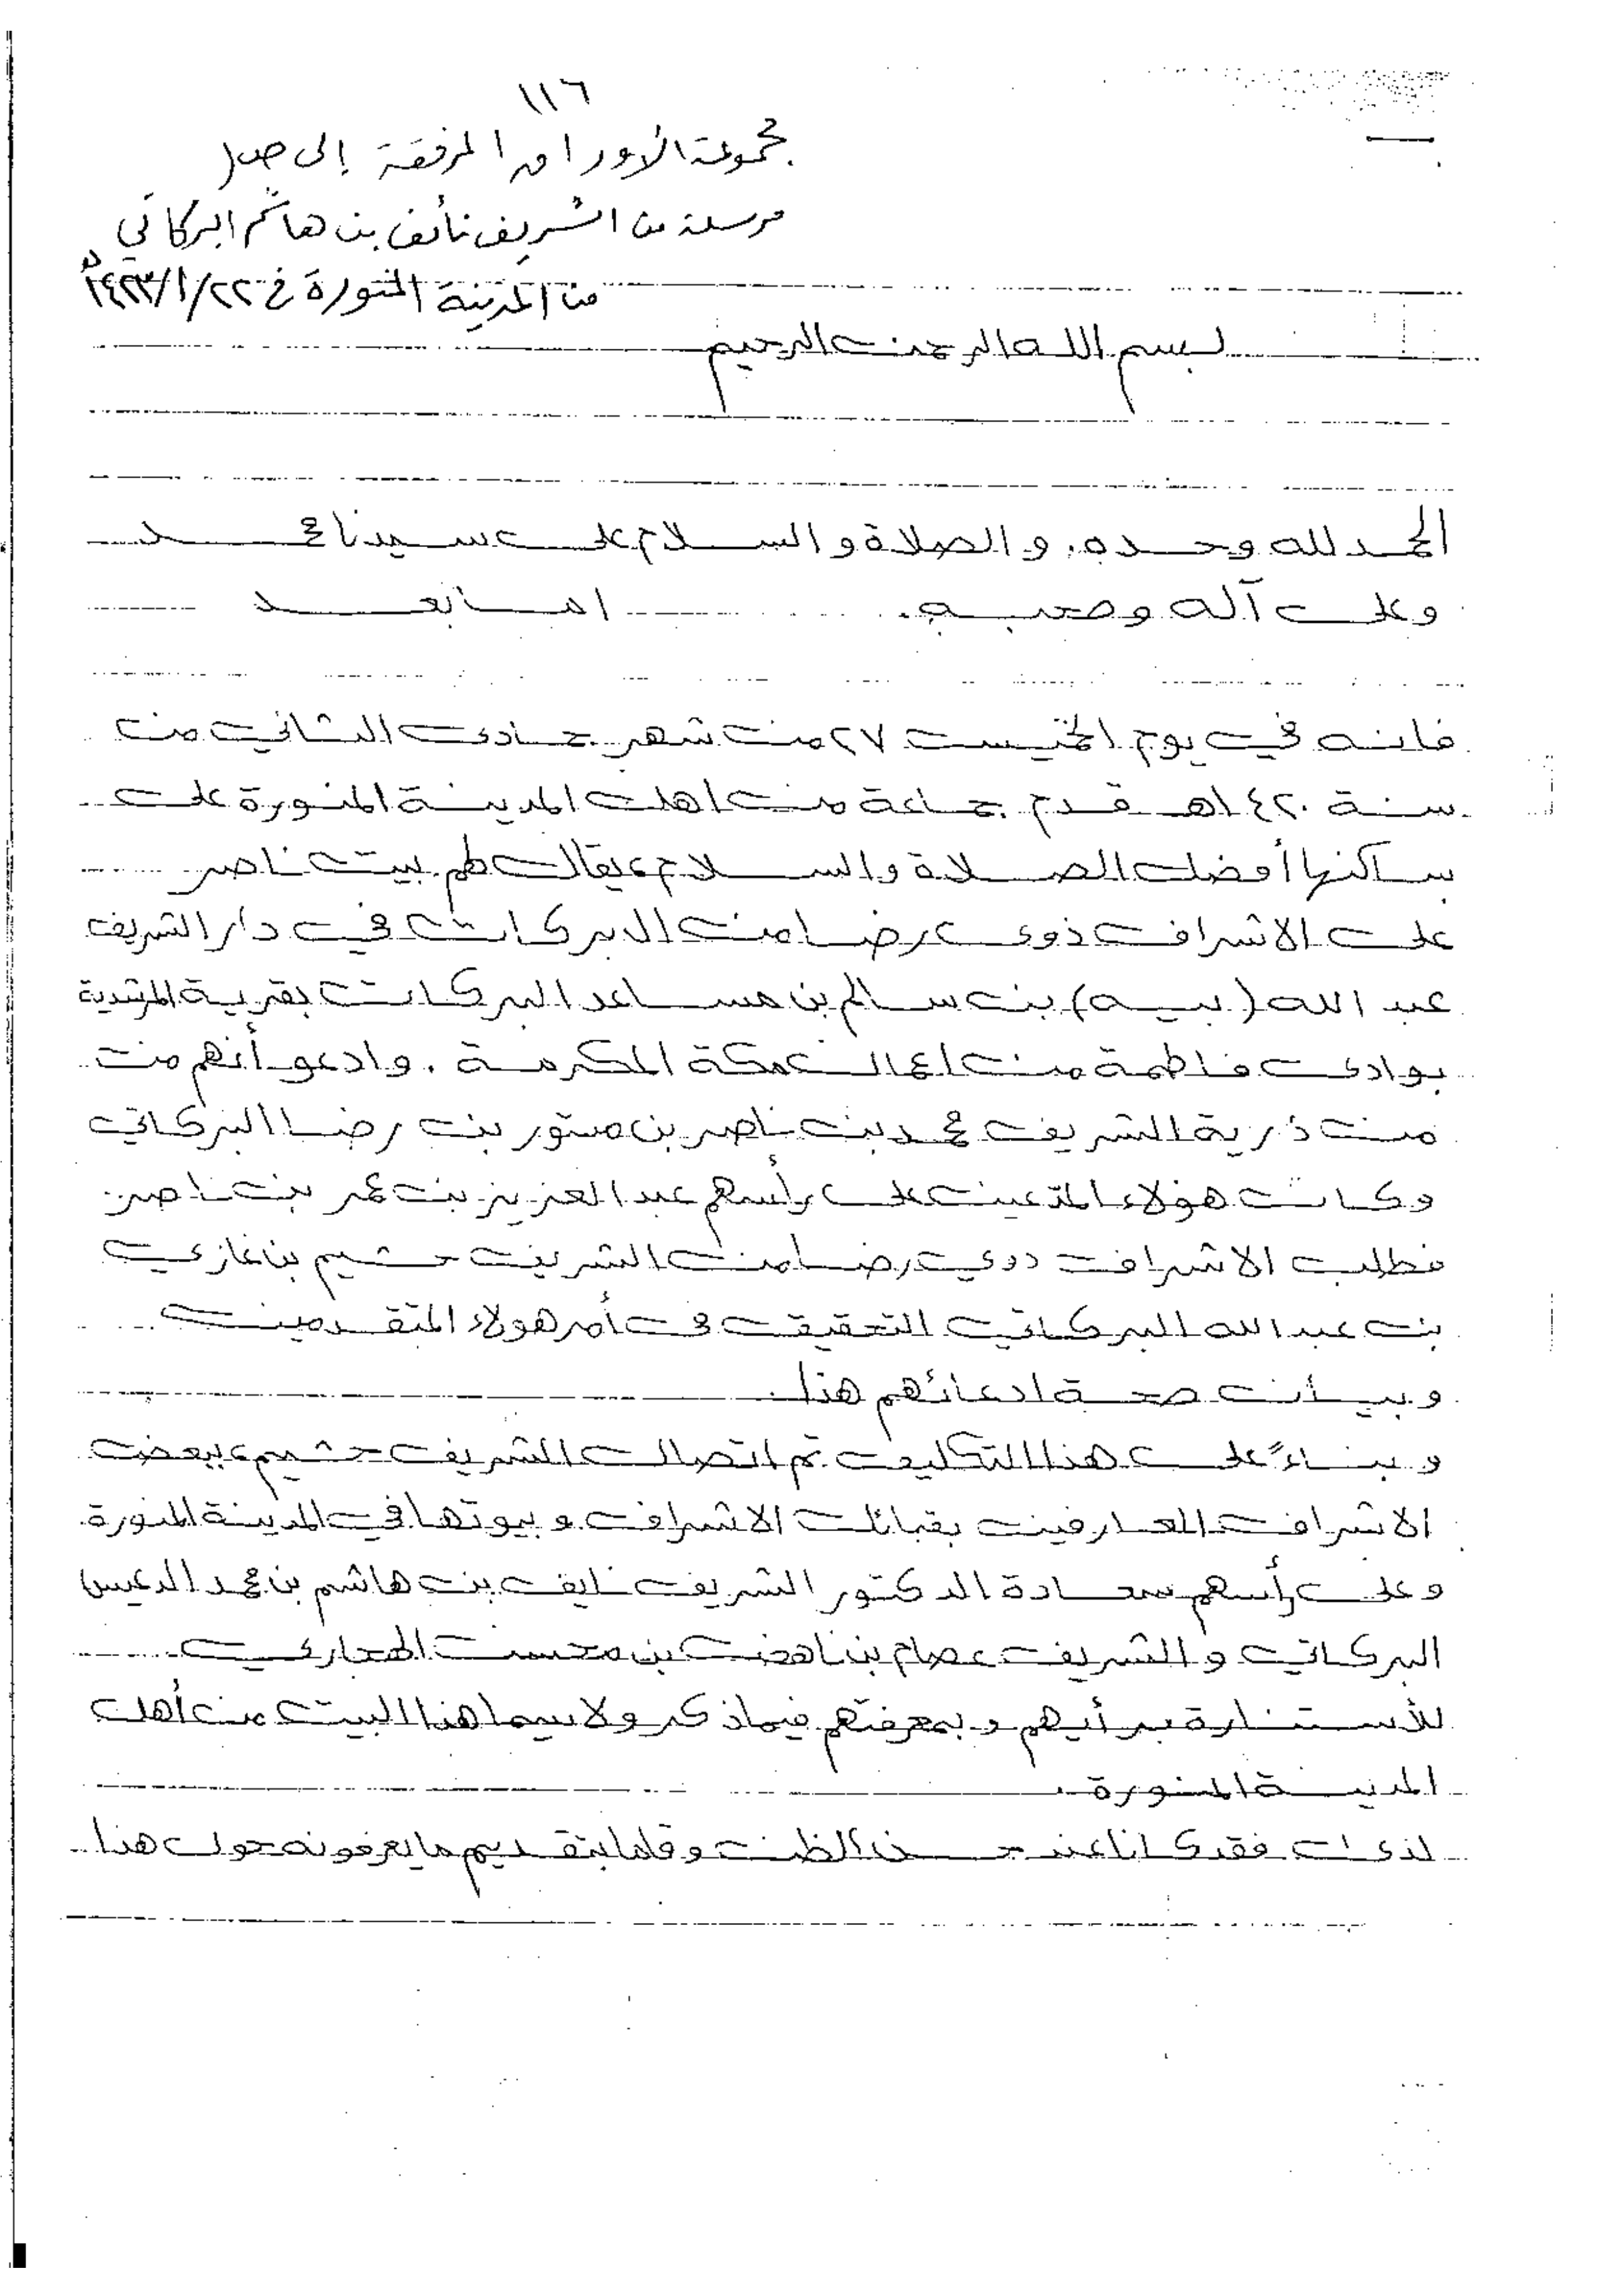 ١١٦
مجموعة الأوراق المرفقة إلى ص١
مرسلة من الشريف نائف بن هاشم البركاتي
من المدينة المنورة في ١٤٢٣/١/٢٢هـ
بسم الله الرحمن الرحيم
الحمد لله وحده، والصلاة والسلام على سيدنا محمد
وعلى آله وصحبه. اما بعد
فانه في يوم الخميس ٢٧ من شهر جمادى الثاني من
سنة ١٤٢٠هـ قدم جماعة من اهل المدينة المنورة على
ساكنها أفضل الصلاة والسلام يقال لهم بيت ناصر
على الاشراف ذوى رضا من البركات في دار الشريف
عبد الله (بيه) بن سالم بن مساعد البركات بقرية المرشدية
بوادى فاطمة من اعمال مكة المكرمة. وادعو أنهم من
من ذرية الشريف محمد بن ناصر بن مستور بن رضا البركاتي
وكان هؤلاء المدعين على رأسهم عبد العزيز بن عمر بن ناصر.
فطلب الاشراف ذوي رضا من الشريف حشيم بن غازي
بن عبد الله البركاتي التحقيق في أمر هولاء المتقدمين
وبيأن صحة ادعائهم هذا.
وبناءً على هذا التكليف تم اتصال الشريف حشيم ببعض
الاشراف العارفين بقبائل الاشراف وبيوتها في المدينة المنورة
وعلى رأسهم سعادة الدكتور الشريف نايف بن هاشم بن محمد الدعيس
البركاتي والشريف عصام بن ناهض بن محسن الهجاري
للأستنارة برأيهم وبمعرفتهم فيما ذكر ولاسيما هذا البيت من أهل
المدينة المنورة.
لذى فقد كانا عند حسن الظن وقاما بتقديم ما يعرفونه حول هذا